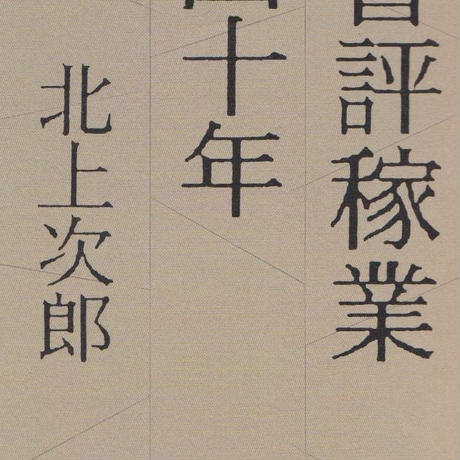 書評稼業
四十年
北上次郎